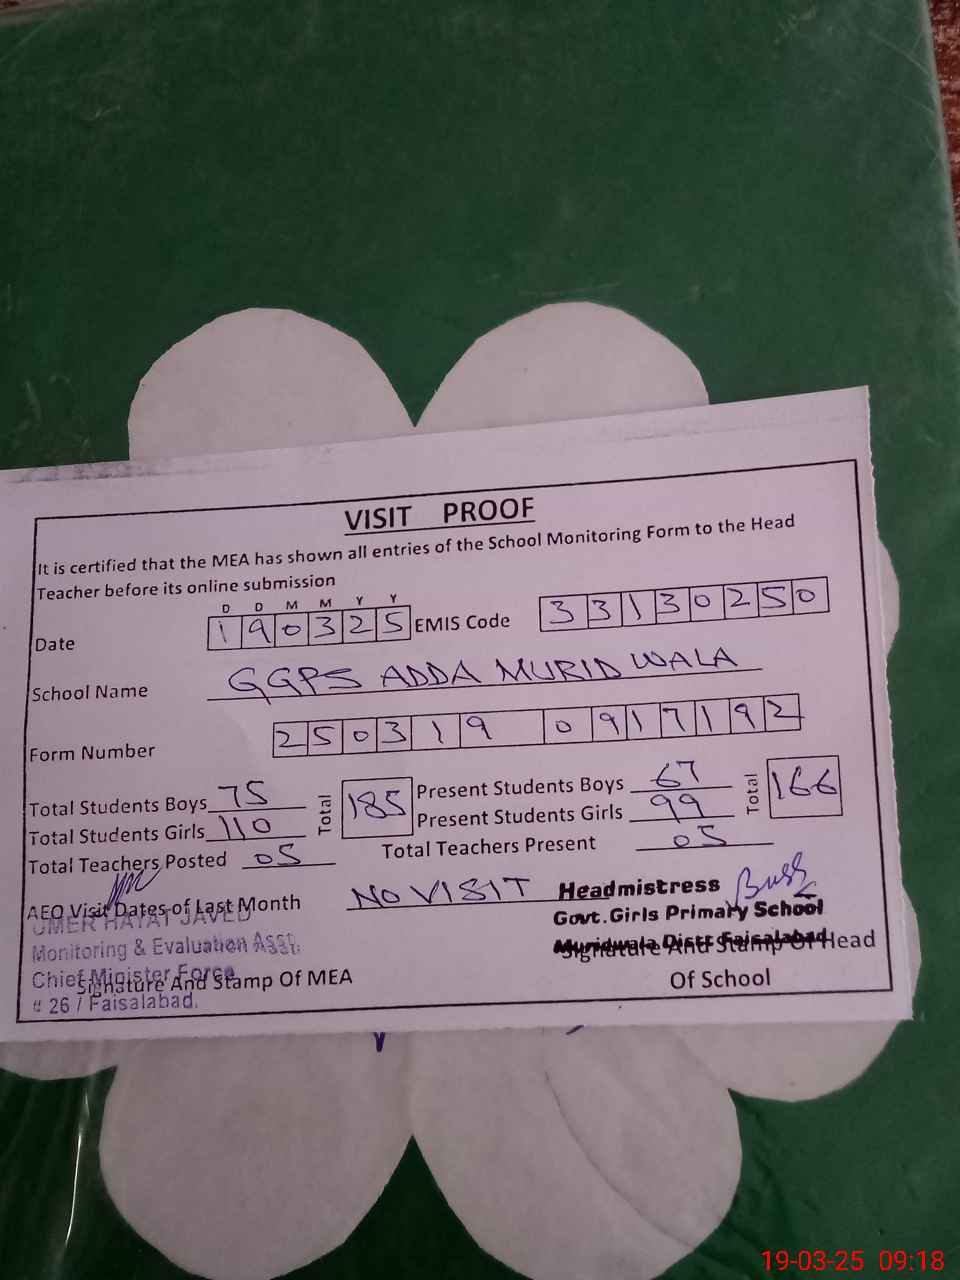 VISIT PROOF
It is certified that the MEA has shown all entries of the School Monitoring Form to the Head
Teacher before its online submission
D D M M Y Y
Date 190325 EMIS Code 33130250
School Name GGPS ADDA MURID WALA
Form Number 250319 0917192
Total Students Boys 75 Total 185 Present Students Boys 67 Total 166
Total Students Girls 110 Present Students Girls 99
Total Teachers Posted 05 Total Teachers Present 05
AEO Visit Dates of Last Month NO VISIT
UMER HAYAT JAVED
Monitoring & Evaluation Asst.
Chief Minister Force
# 26 / Faisalabad.
Signature And Stamp Of MEA
Headmistress
Govt. Girls Primary School
Muridwala Distt Faisalabad
Signature And Stamp Of Head
Of School
19-03-25 09:18